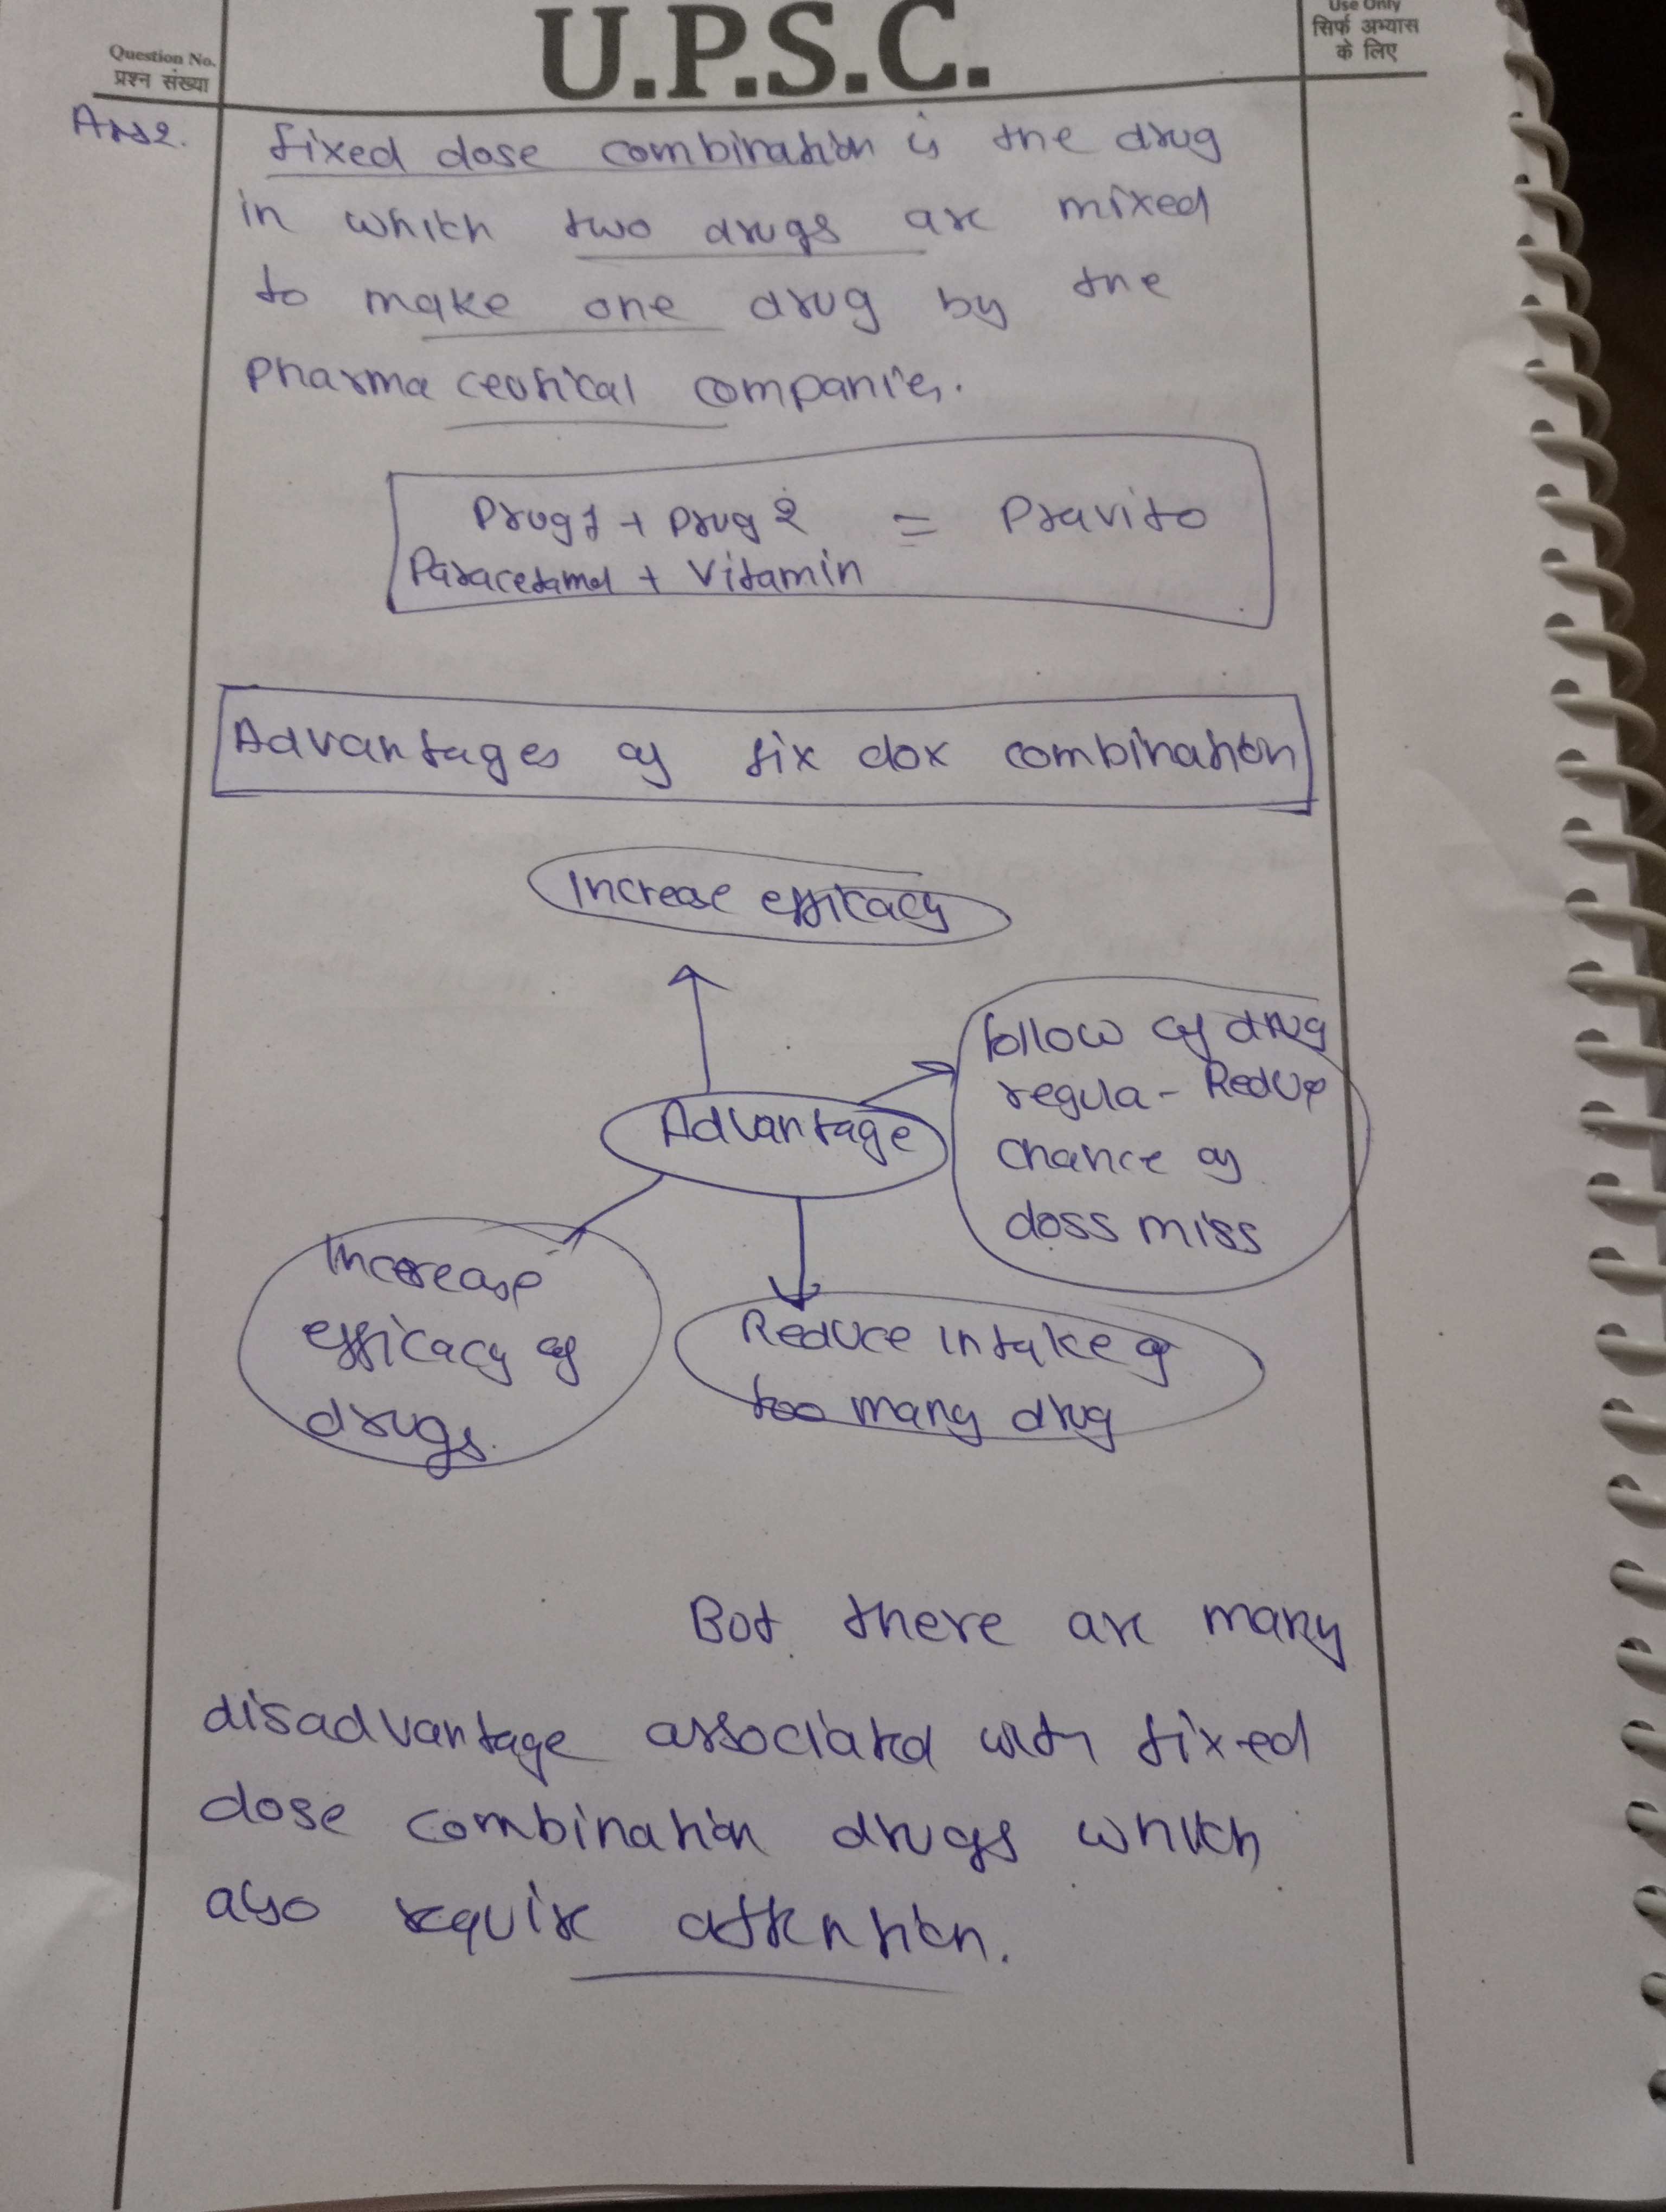 Question No.
प्रश्न संख्या
U.P.S.C.
Use Only
सिर्फ अभ्यास
के लिए
Ans2.
fixed dose combination is the drug
in which two drugs are mixed
to make one drug by the
Pharma ceutical companies.
Drug 1 + Drug 2 = Pravito
Paracetamol + Vitamin
Advantages of fix dox combination
Increase efficacy
follow of drug
regula - Reduce
chance of
doss miss
Advantage
Increase
efficacy of
drugs.
Reduce intake of
too many drug
But there are many
disadvantage associated with fixed
dose combination drugs which
also require attention.